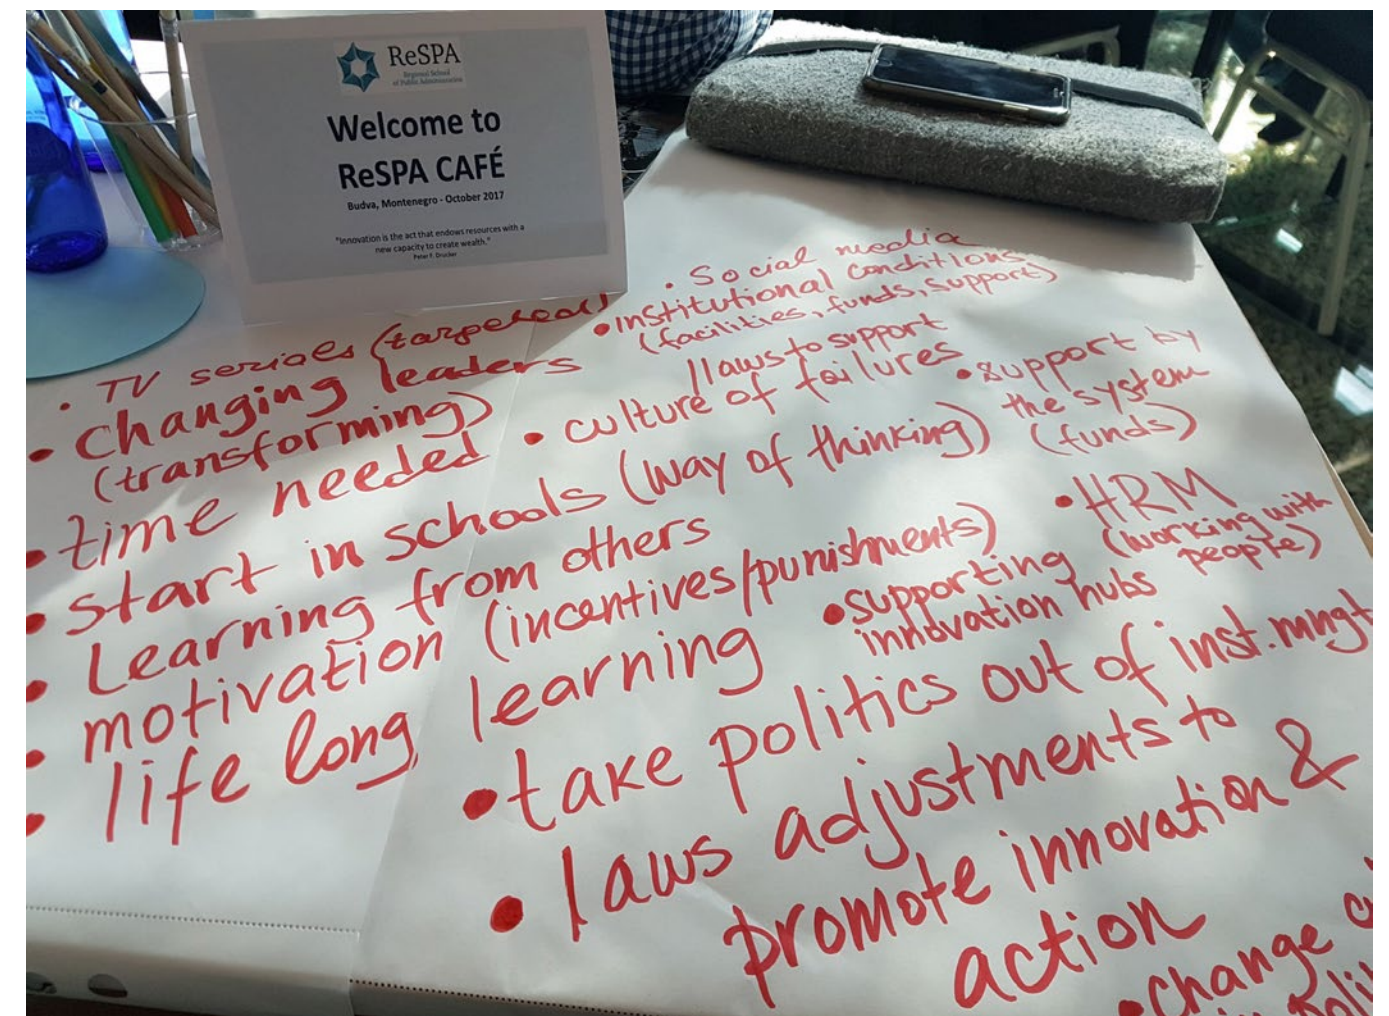 ReSPA
Regional School
of Public Administration
Welcome to
ReSPA CAFÉ
Budva, Montenegro - October 2017
"Innovation is the act that endows resources with a
new capacity to create wealth."
Peter F. Drucker
• TV serials (targeted)
• changing leaders
(transforming)
• time needed
• start in schools (way of thinking)
• Learning from others
• motivation (incentives/punishments)
• life long learning
• Social media
• institutional conditions
(facilities, funds, support)
/laws to support
• culture of failures
• support by
the system
(funds)
• HRM
(working with
people)
• supporting
innovation hubs
• take politics out of inst. mngt
• laws adjustments to
promote innovation &
action
• change
in